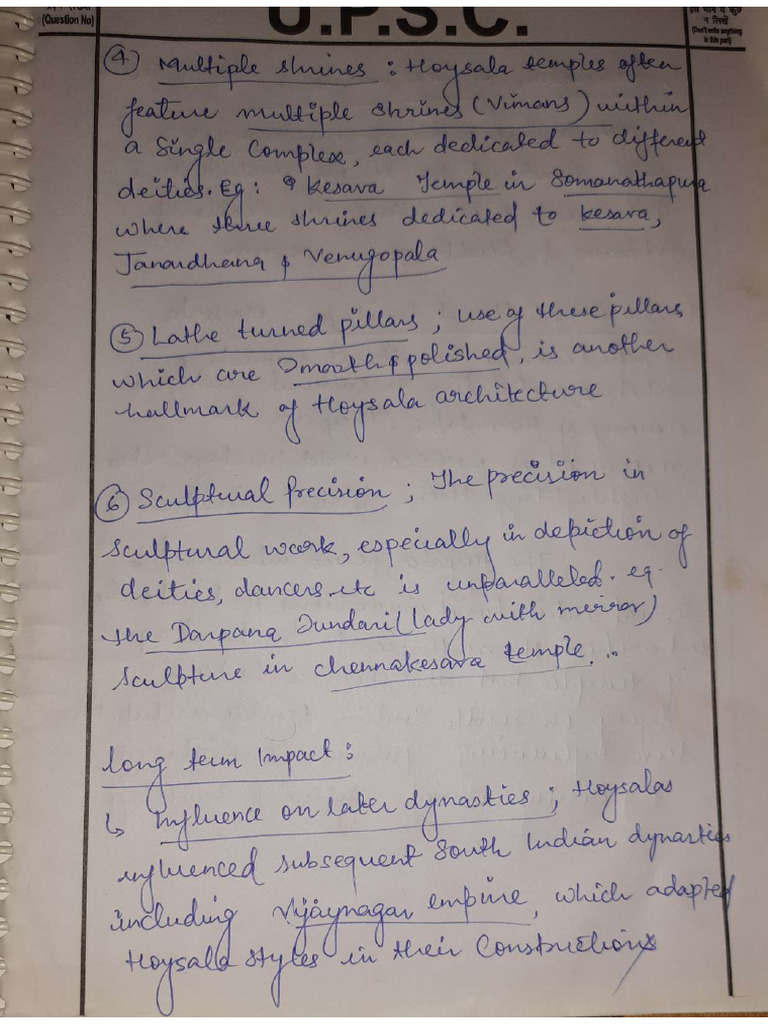 (Question No)
U.P.S.C.
न लिखें
(Don't write anything
in this part)
④ Multiple shrines : Hoysala temples often
feature multiple shrines (Vimans) within
a single complex, each dedicated to different
deities. Eg: Kesava Temple in Somanathapura
where three shrines dedicated to kesava,
Janardhana & Venugopala
⑤ Lathe turned pillars ; use of these pillars
which are smooth & polished, is another
hallmark of Hoysala architecture
⑥ Sculptural Precision ; The precision in
sculptural work, especially in depiction of
deities, dancers, etc is unparalleled. eg.
the Darpana Sundari (lady with merror)
sculpture in chennakesava temple...
long term Impact :
↳ Influence on later dynasties ; Hoysalas
influenced subsequent South Indian dynasties
including Vijaynagar empire, which adapted
Hoysala styles in their Constructions